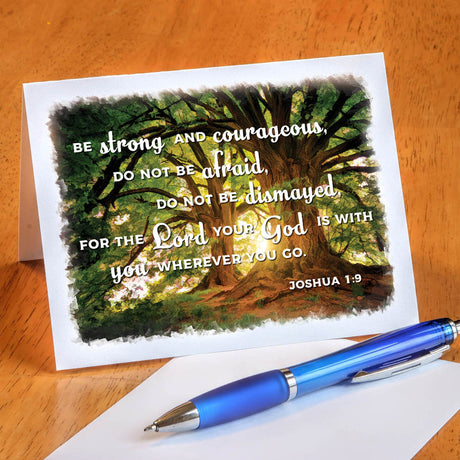 BE strong AND courageous,
DO NOT BE afraid,
DO NOT BE dismayed,
FOR THE Lord YOUR God IS WITH
you WHEREVER YOU GO.
JOSHUA 1:9